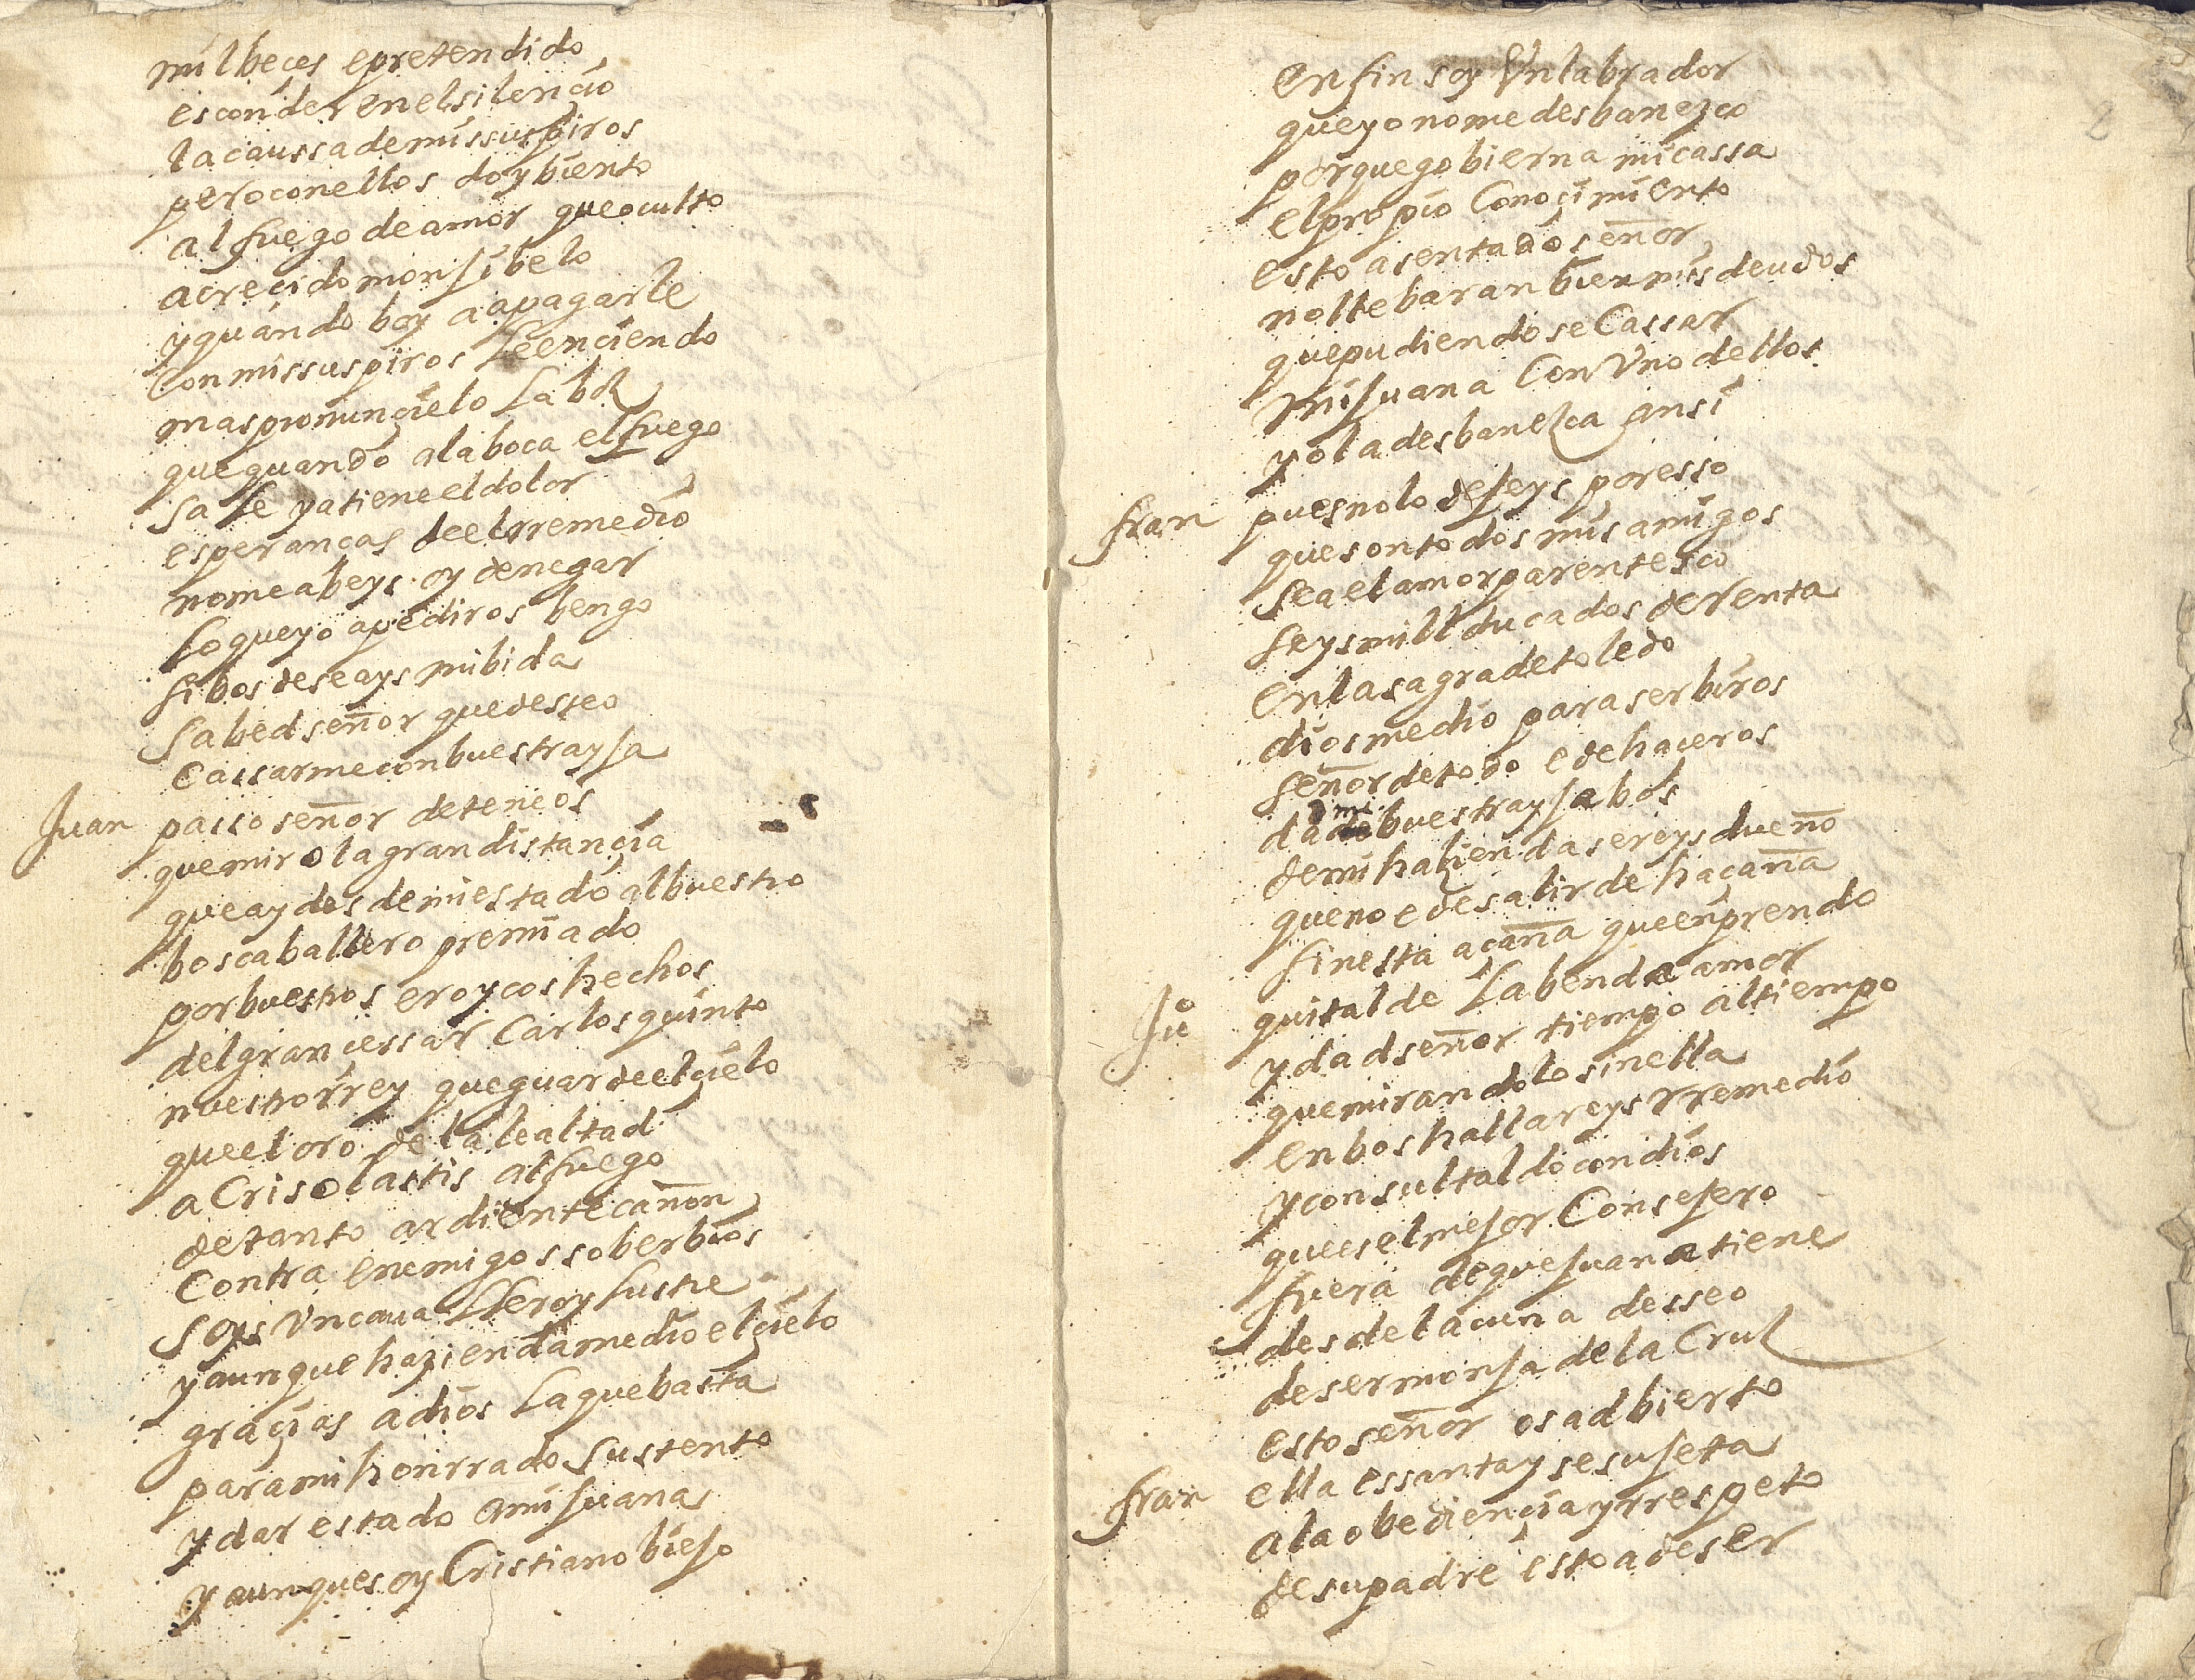 mil beces e pretendido
esconder en el silencio
la caussa de mis suspiros
pero con ellos doy biento
al fuego de amor que oculto
a crecido monjibelo
y quando boy a apagarle
Con mis suspiros le enciendo
mas pronunçielo la boz
que quando a la boca el fuego
sale ya tiene el dolor
esperancas de el rremedio
no me abeys oy de negar
lo que yo a pediros bengo
si bos deseays mi bida
sabed señor que desseo
cassarme con buestra yja
Juan passo señor deteneos
que miro la gran distançia
que ay desde mi estado al buestro
bos caballero premiado
por buestros eroycos hechos
del gran cessar Carlos quinto
nuestro rrey que guarde el çielo
que el oro de la lealtad
a Crisolastis al fuego
de tanto ardiente cañon
Contra enemigos soberbios
soys Un caua llero ylustre
y aunque hazienda me dio el çielo
graçias a dios la que basta
para mi honrrado sustento
y dar estado a mi juana
y aunque soy Cristiano biejo
2
en fin soy Un labrador
que yo no me desbanezco
porque gobierna mi cassa
el propio Conoçimiento
esto asentado señor
no llebaran bien mis deudos
que pudiendose Cassar
mi juana Con Uno dellos
yo la desbanezca ansi
fran pues no lo dejeys por esso
que son todos mis amigos
sea el amor parentesco
seys mill ducados de rrenta
en la sagra de toledo
dios me dio para serbiros
señor de todo e de haceros
dadme buestra yja bos
de mi hazienda sereys dueño
que no e de salir de haçaña
sin esta açaña que enprendo
Juº quitalde la benda a amor
y dad señor tiempo al tiempo
que mirandolo sin ella
en bos hallareys rremedio
y consultaldo con dios
que es el mejor Consejero
fuera de que juana tiene
desde la cuna desseo
de ser monja de la Cruz
esto señor os adbierto
fran ella es santa y se sujeta
a la obediençia y rrespeto
de su padre esto a de ser